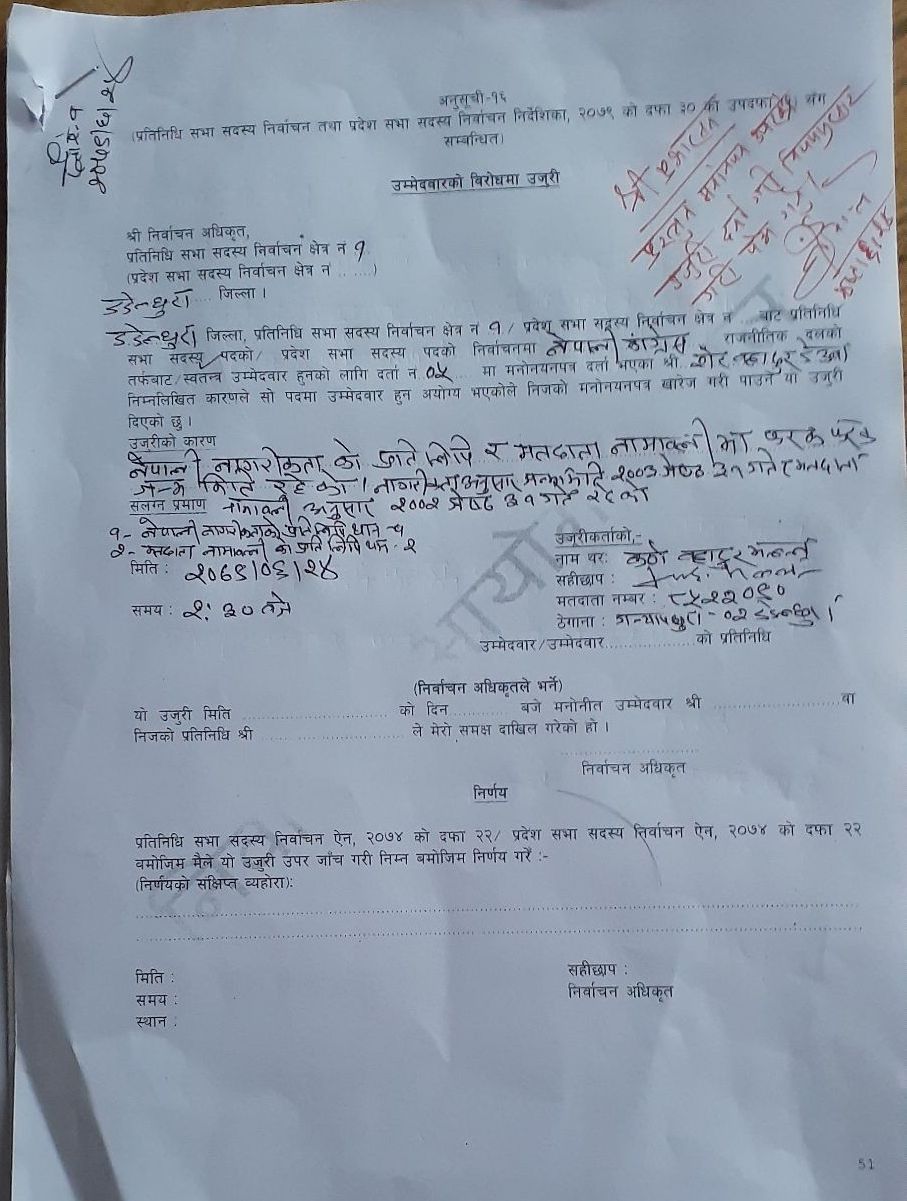 द.नं. १
२०७९/६/२४
अनुसूची-१६
(प्रतिनिधि सभा सदस्य निर्वाचन तथा प्रदेश सभा सदस्य निर्वाचन निर्देशिका, २०७९ को दफा ३० को उपदफा संग
सम्बन्धित)
उम्मेदवारको विरोधमा उजुरी
श्री निर्वाचन अधिकृत,
प्रतिनिधि सभा सदस्य निर्वाचन क्षेत्र नं १
(प्रदेश सभा सदस्य निर्वाचन क्षेत्र नं ........)
डडेल्धुरा.... जिल्ला ।
डडेल्धुरा जिल्ला, प्रतिनिधि सभा सदस्य निर्वाचन क्षेत्र नं १/ प्रदेश सभा सदस्य निर्वाचन क्षेत्र नं ... बाट प्रतिनिधि
सभा सदस्य पदको/ प्रदेश सभा सदस्य पदको निर्वाचनमा नेपाली कांग्रेस राजनीतिक दलको
तर्फबाट/स्वतन्त्र उम्मेदवार हुनको लागि दर्ता नं ०५ ... मा मनोनयनपत्र दर्ता भएका श्री शेर बहादुर देउवा
निम्नलिखित कारणले सो पदमा उम्मेदवार हुन अयोग्य भएकोले निजको मनोनयनपत्र खारेज गरी पाउन यो उजुरी
दिएको छु ।
उजुरीको कारण
नेपाली नागरीकता को प्रतिलिपि र मतदाता नामावली मा फरक फरक
जन्म मिति रहेको । नागरीकता अनुसार जन्म मिति २००३ जेष्ठ ३१ गते र मतदाता
संलग्न प्रमाण नामावली अनुसार २००२ जेष्ठ ३१ गते रहेको
१- नेपाली नागरीकताको प्रतिलिपि थान - १
२- मतदाता नामावली को प्रतिलिपि थान - २
मिति : २०७९/०६/२४
समय : २:३० बजे
उजुरीकर्ताको,-
नाम थर: बहादुर
सहीछाप :
मतदाता नम्बर :
ठेगाना : डडेल्धुरा
उम्मेदवार/उम्मेदवार..................को प्रतिनिधि
(निर्वाचन अधिकृतले भर्ने)
यो उजुरी मिति ........................... को दिन............ बजे मनोनीत उम्मेदवार श्री .........................वा
निजको प्रतिनिधि श्री ............................... ले मेरो समक्ष दाखिल गरेको हो ।
निर्वाचन अधिकृत
निर्णय
प्रतिनिधि सभा सदस्य निर्वाचन ऐन, २०७४ को दफा २२/ प्रदेश सभा सदस्य निर्वाचन ऐन, २०७४ को दफा २२
बमोजिम मैले यो उजुरी उपर जाँच गरी निम्न बमोजिम निर्णय गरें :-
(निर्णयको संक्षिप्त व्यहोरा):
मिति :
समय :
स्थान :
सहीछाप :
निर्वाचन अधिकृत
51